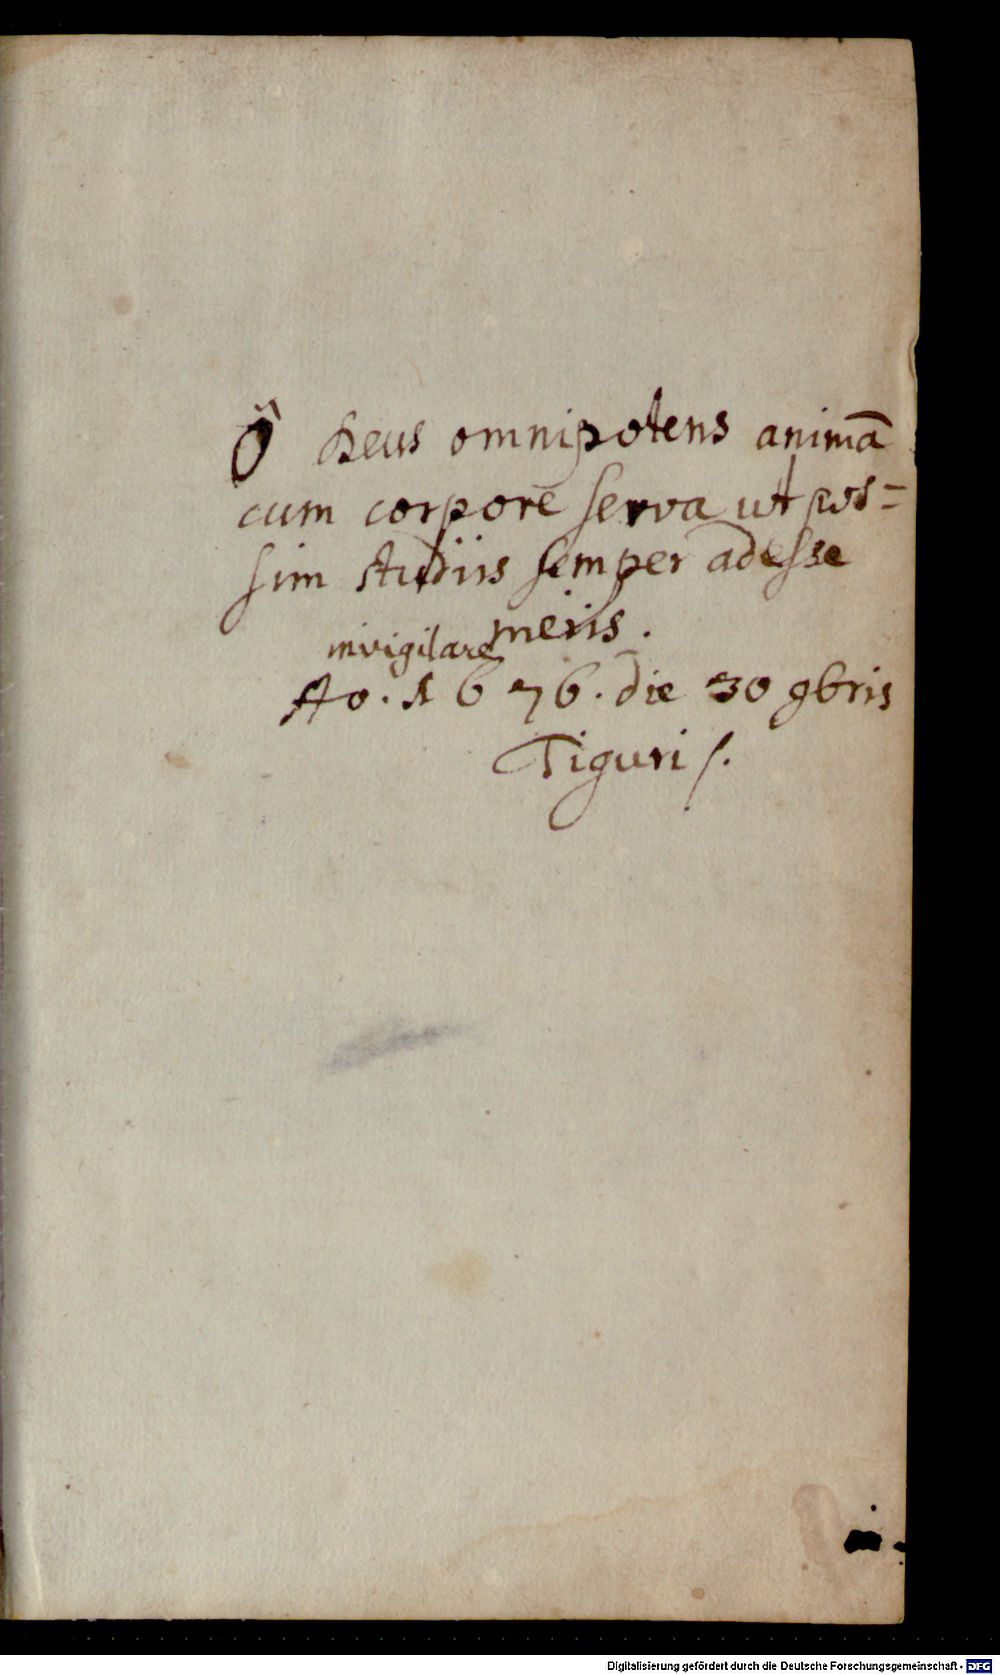 Ô Deus omnipotens animā
cum corpore serva ut pos=
sim studiis semper adesse
meis.
invigilare
Ao. 1676. die 30 9bris
Tiguri /.
Digitalisierung gefördert durch die Deutsche Forschungsgemeinschaft - DFG